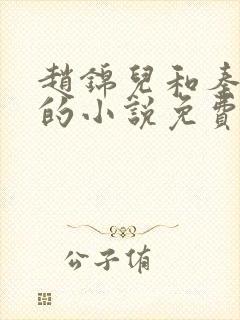 趙錦兒和秦
的小說免費
公子侑